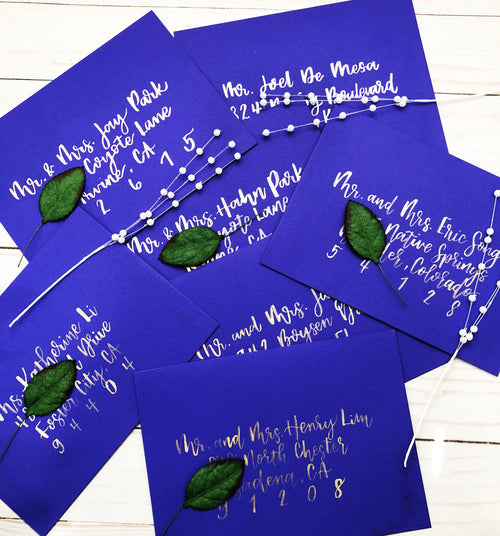 Mr. & Mrs. Jay Park
Coyote Lane
Irvine, CA
2 6 1 5
Mr. Joel De Mesa
Boulevard
Mr. & Mrs. Hahn Park
Coyote Lane
CA
Mr. and Mrs. Eric Song
Native Springs
Colorado
5 4 1 2 8
Mr. and Mrs.
Boysen
Ms. Katherine Li
Drive
Foster City, CA
9 4 4 0 4
Mr. and Mrs. Henry Lim
North Chester
Pasadena, CA
1 2 0 8